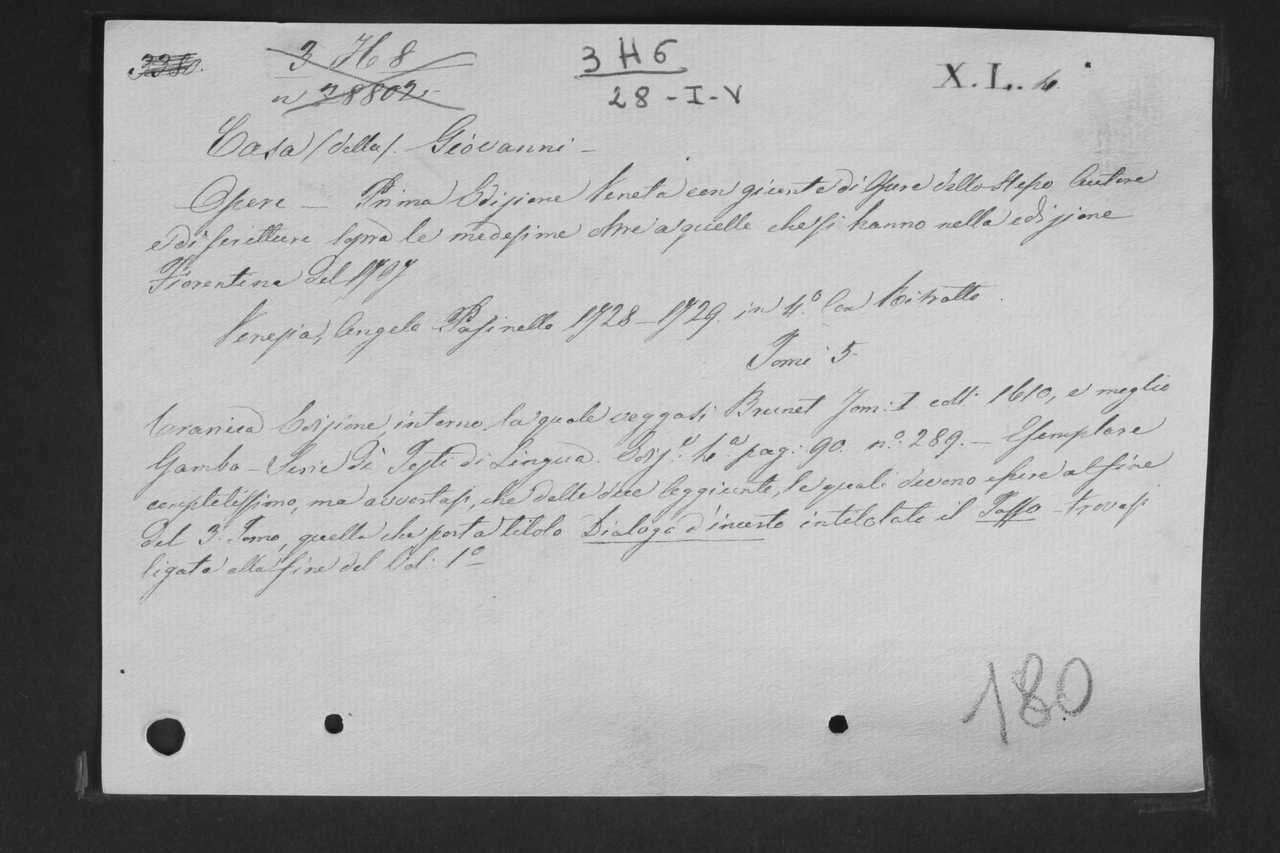 3380.
3 H 8
n 28802
3 H 6
28-I-V
X. L. 4
Casa (della). Giovanni -
Opere - Prima Edizione Veneta con giunta di Opere dello stesso Autore
e di scritture sopra le medesime oltre a quelle che si hanno nella edizione
Fiorentina del 1707
Venezia, Angelo Pasinello 1728-1729. in 4.° Con Ritratto.
Tomi 5.
Edizione, intorno la quale veggasi Brunet Tom: I coll: 1610, e meglio
Gamba - Serie di Testi di Lingua. Ediz.e 4.a pag: 90. n.° 289. - Esemplare
completissimo, ma avvertasi, che delle due aggiunte, le quali devono essere al fine
del 3. Tomo, quella che porta titolo Dialogo d'incerto intitolato il Tasso - trovasi
ligata alla fine del Vol: 1°
180